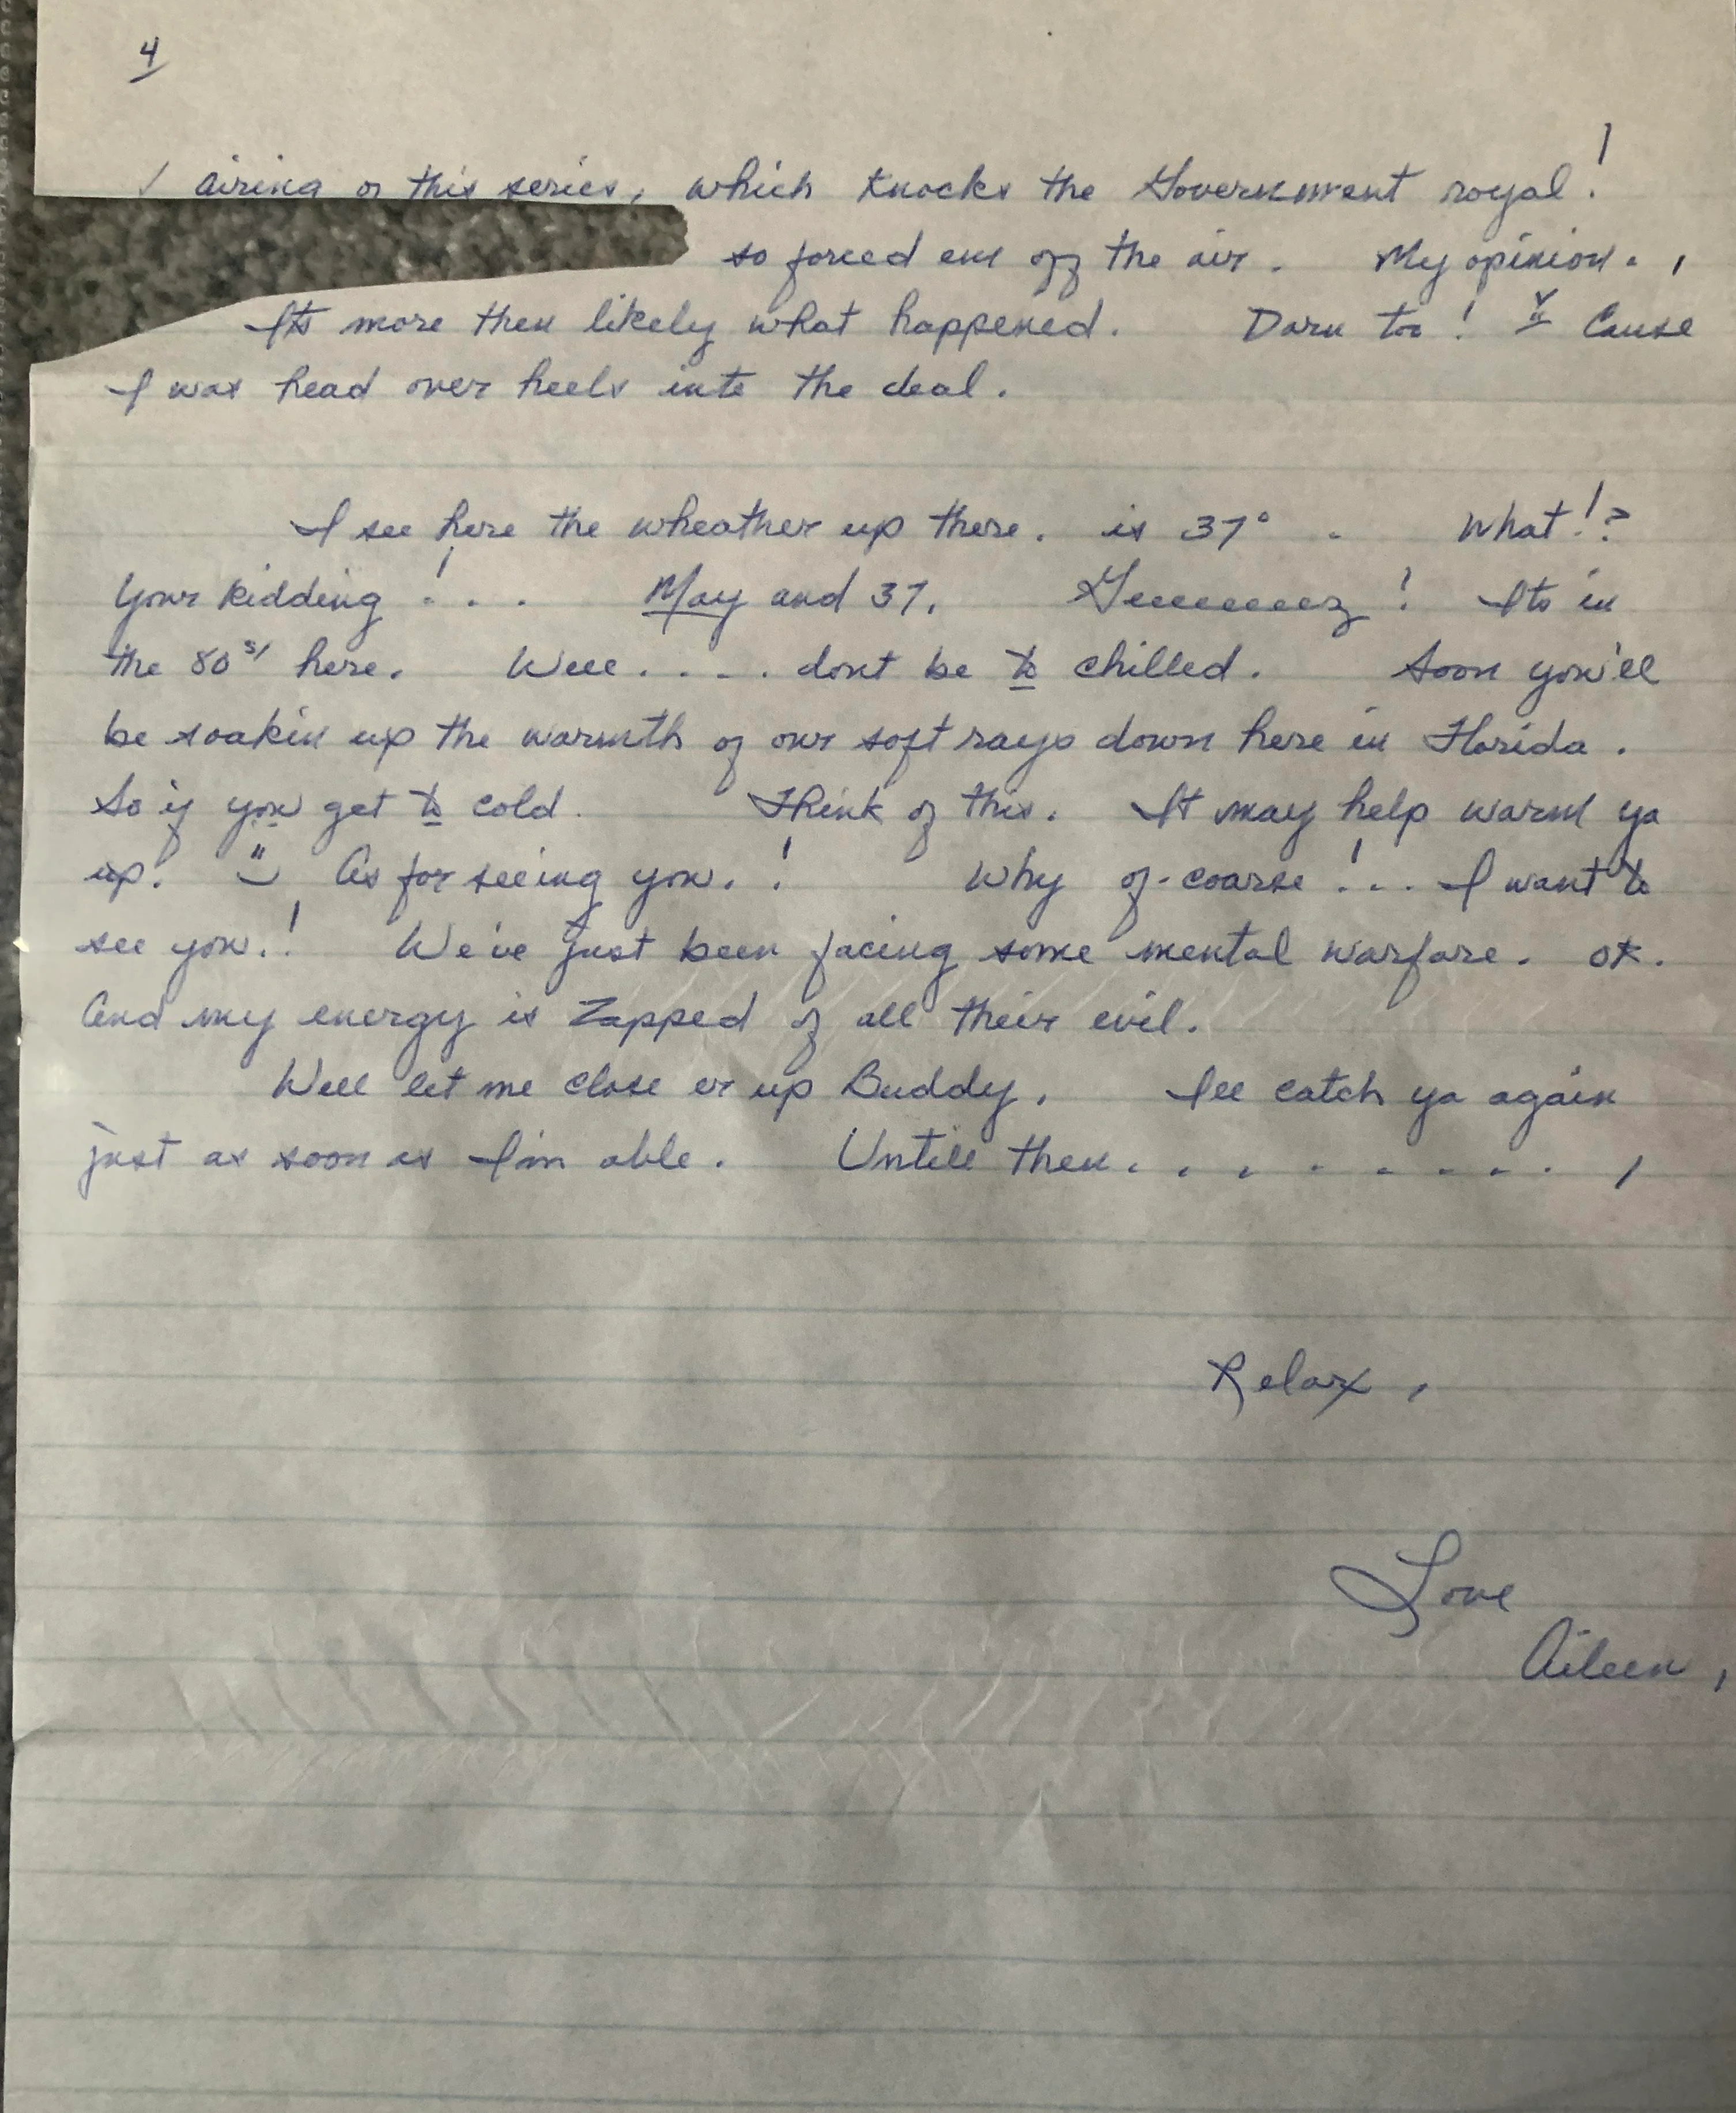 4
airing of this series, which knocks the Government royal!
so forced em off the air. My opinion.,
Its more then likely what happened. Darn too! Cause
I was head over heels into the deal.
I see here the wheather up there. is 37°. What!?
Your kidding!... May and 37. Geeeeeeez! Its in
the 80s' here. Well.... dont be to chilled. Soon you'll
be soakin up the warmth of our soft rays down here in Florida.
So if you get to cold. Think of this. It may help warm ya
up! As for seeing you.! Why of-coarse!... I want to
see you.! We've just been facing some mental warfare. OK.
And my energy is Zapped of all their evil.
Well let me close er up Buddy. Ill catch ya again
just as soon as I'm able. Untill then..........,
Relax,
Love
Aileen,